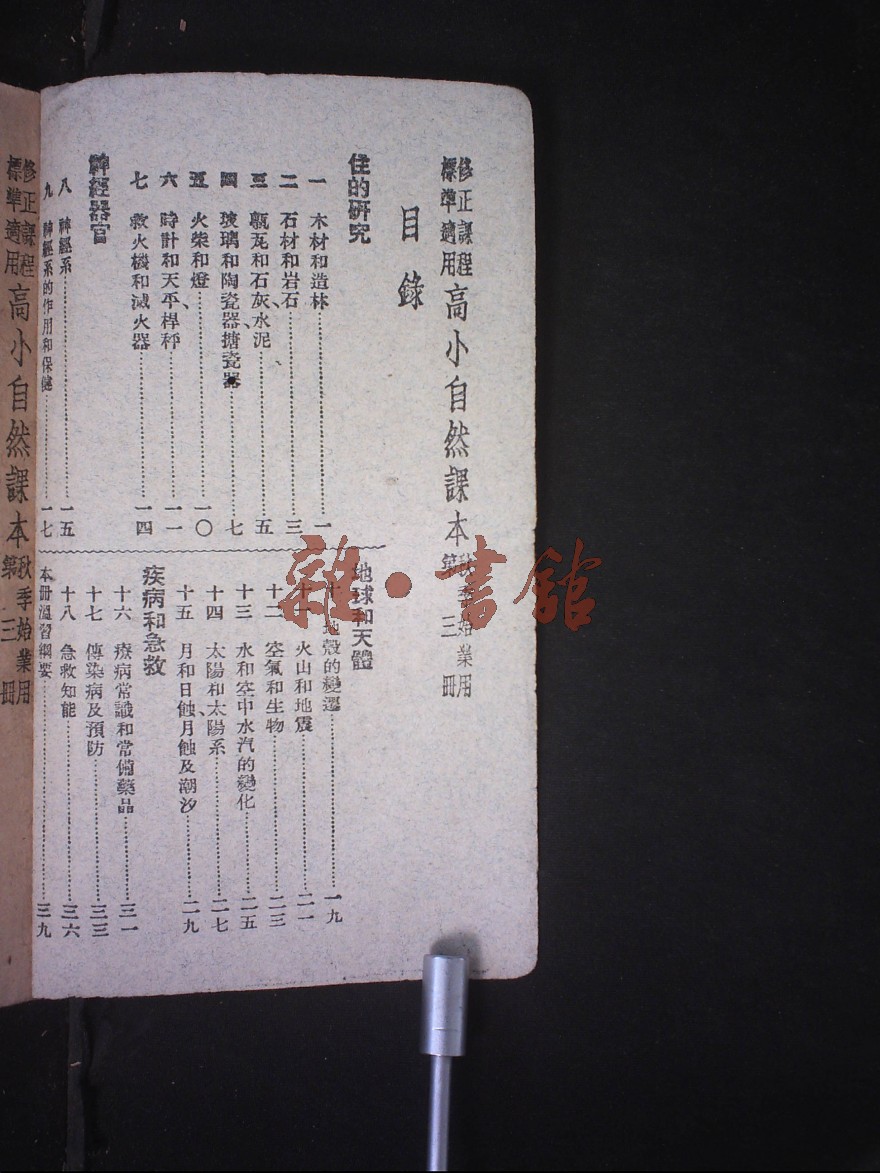 修正課程標準適用 高小自然課本 秋季始業用 第三冊
目錄
住的研究
一 木材和造林 一
二 石材和岩石 三
三 甎瓦和石灰、水泥 五
四 玻璃和陶瓷器、搪瓷器 七
五 火柴和燈 一〇
六 時計和天平、桿秤 一一
七 救火機和滅火器 一四
神經器官
八 神經系 一五
九 神經系的作用和保健 一七
地球和天體
十 地殼的變遷 一九
十一 火山和地震 二一
十二 空氣和生物 二三
十三 水和空中水汽的變化 二五
十四 太陽和太陽系 二七
十五 月和日蝕、月蝕及潮汐 二九
疾病和急救
十六 療病常識和常備藥品 三一
十七 傳染病及預防 三三
十八 急救知能 三六
本冊溫習綱要 三九
修正課程標準適用 高小自然課本 秋季始業用 第三冊
雜·書館